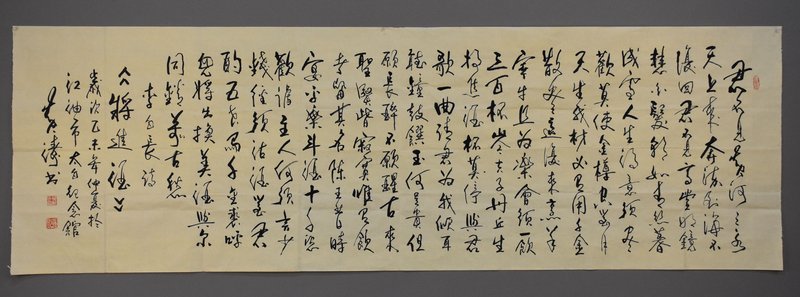 君不见黄河之水
天上来奔流到海不
復回君不见高堂明镜
悲白髮朝如青丝暮
成雪人生得意须尽
歡莫使金樽空对月
天生我材必有用千金
散尽还復来烹羊
宰牛且为樂會须一飲
三百杯岑夫子丹丘生
将進酒杯莫停與君
歌一曲请君为我倾耳
听鐘鼓饌玉何足贵但
願長醉不願醒古来
聖賢皆寂寞惟有飲
者留其名陈王昔时
宴平樂斗酒十千恣
歡谑主人何须言少
錢径须沽酒对君
酌五花馬千金裘呼
兒将出换美酒與尔
同銷萬古愁
李白長詩
《将進酒》
歲次乙未年仲夏於
江油市太白纪念館
濤书